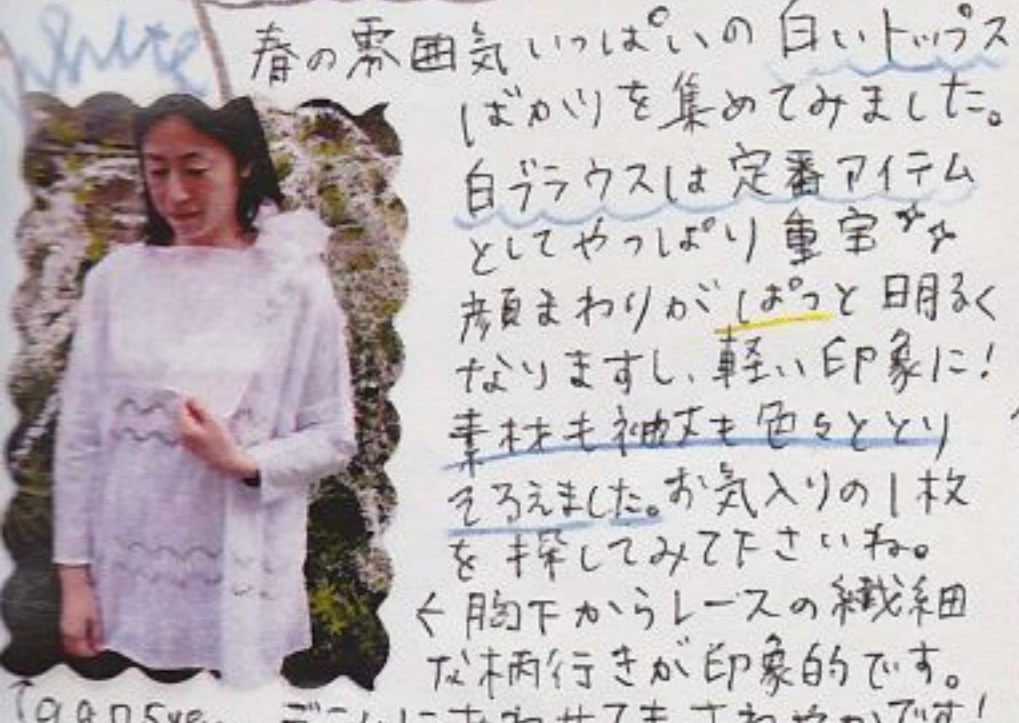 White
春の雰囲気いっぱいの白いトップス
ばかりを集めてみました。
白ブラウスは定番アイテム
としてやっぱり重宝
顔まわりがぱっと明るく
なりますし、軽い印象に!
素材も袖丈も色々ととり
そろえました。お気入りの1枚
を探してみて下さいね。
←胸下からレースの繊細
な柄行きが印象的です。
デニムにあわせてもさわやかです!